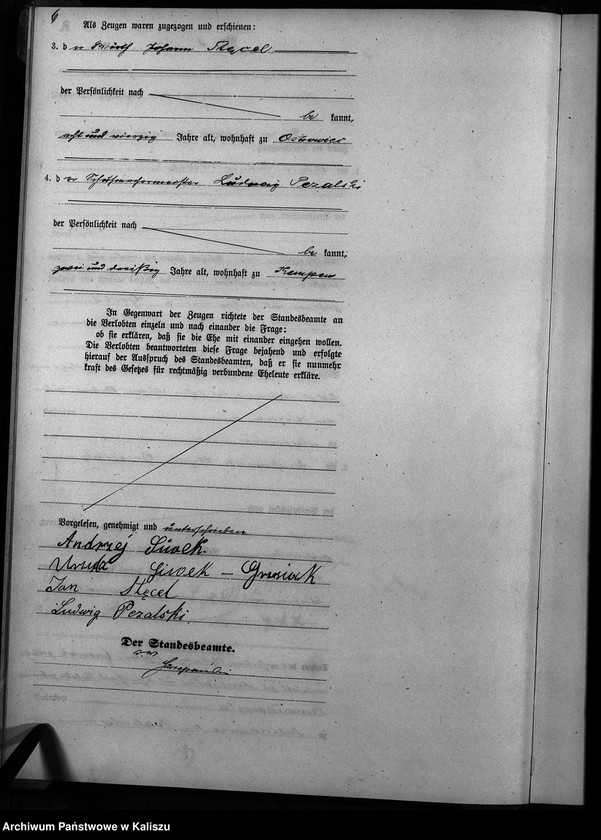 6
Als Zeugen waren zugezogen und erschienen:
3. der Wirth Johann Stęcel
der Persönlichkeit nach
bekannt,
acht und vierzig Jahre alt, wohnhaft zu
4. der Schuhmachermeister Ludwig Pezalski
der Persönlichkeit nach
bekannt,
zwei und dreißig Jahre alt, wohnhaft zu Kempen
In Gegenwart der Zeugen richtete der Standesbeamte an
die Verlobten einzeln und nach einander die Frage:
ob sie erklären, daß sie die Ehe mit einander eingehen wollen.
Die Verlobten beantworteten diese Frage bejahend und erfolgte
hierauf der Ausspruch des Standesbeamten, daß er sie nunmehr
kraft des Gesetzes für rechtmäßig verbundene Eheleute erkläre.
Vorgelesen, genehmigt und unterschrieben
Andrzej
Jan Stęcel
Ludwig Pezalski.
Der Standesbeamte.
Archiwum Państwowe w Kaliszu